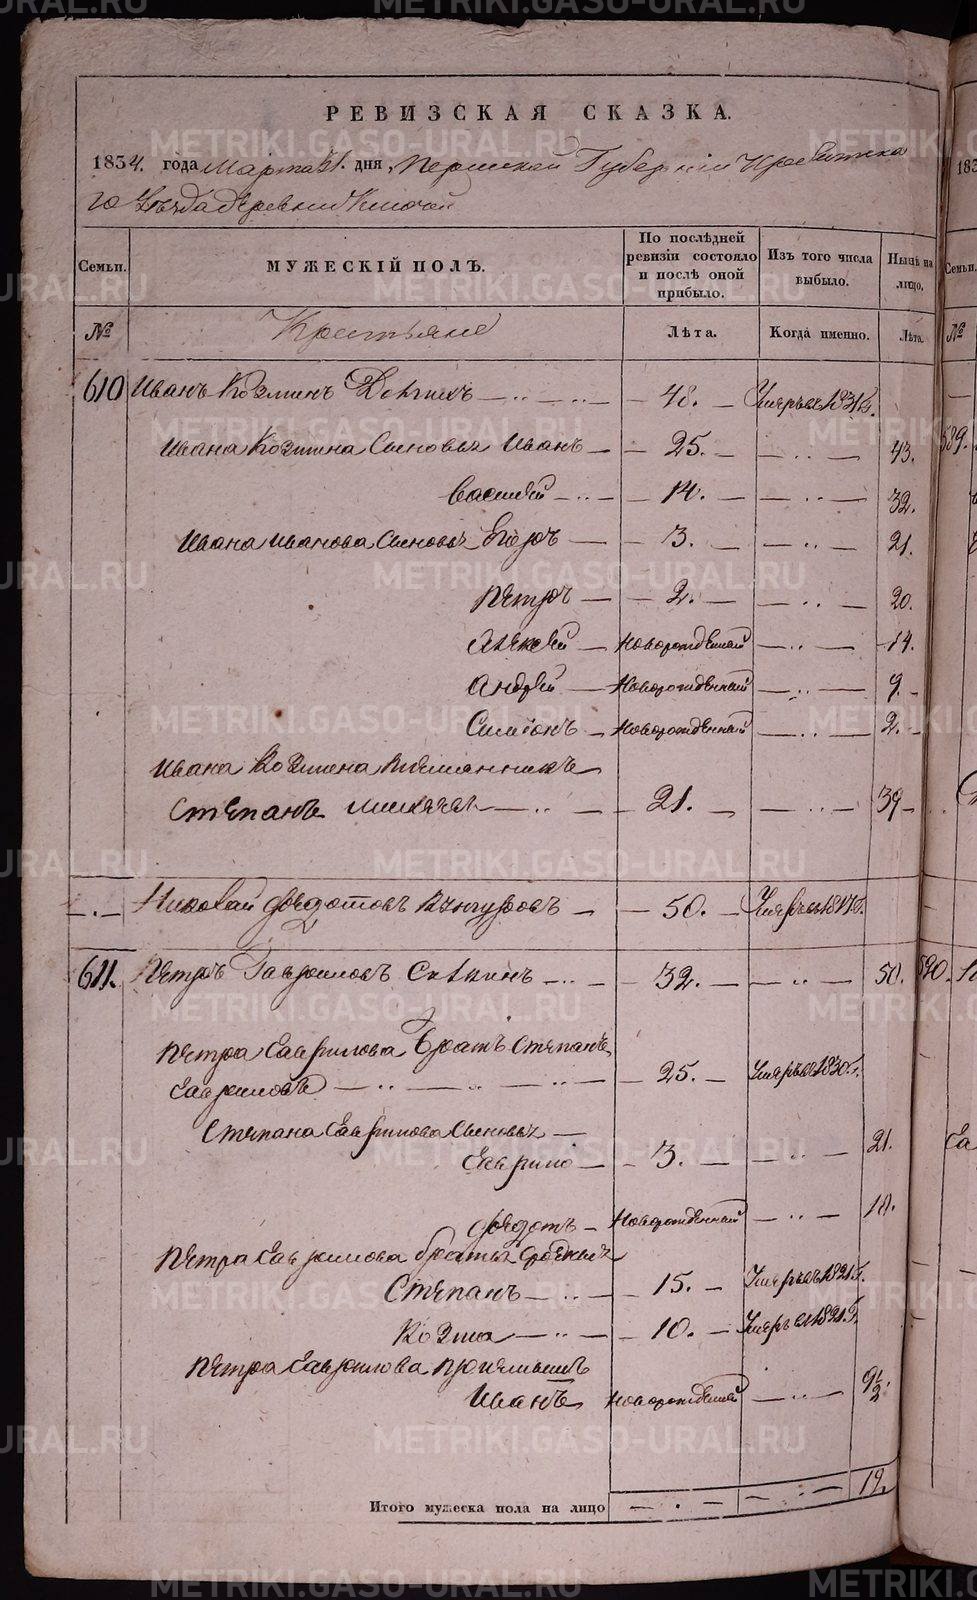 РЕВИЗСКАЯ СКАЗКА.
1834. года Марта 31. дня, Пермской Губерніи Ирбитска
го Уезда деревни Ключей
Семьи. МУЖЕСКІЙ ПОЛЪ. По послѣдней ревизіи состояло и послѣ оной прибыло. Изъ того числа выбыло. Нынѣ на лицо.
№ Крестьяне Лѣта. Когда именно. Лѣта.
610 Иванъ Козминъ 48. Умеръ въ 1831 Г.
Ивана Козмина Сыновья Иванъ 25. 43.
Василей 14. 32.
Ивана Иванова Сыновья Егоръ 3. 21.
Петръ 2. 20.
Алексей Новорожденный 14.
Андрей Новорожденный 9.
Симионъ Новорожденный 2.
Ивана Козмина племянникъ
Степанъ 21. 39
Николай Федотовъ 50. Умеръ въ 1817 Г.
611. Петръ Гавриловъ 32. 50.
Петра Гаврилова Братъ Степанъ
Гавриловъ 25. Умеръ въ 1830. Г.
Степана Гаврилова Сыновья
Гаврило 3. 21.
Федотъ Новорожденный 18.
Петра Гаврилова братья
Степанъ 15. Умеръ въ 1821 Г.
Козма 10. Умеръ въ 1821. Г.
Петра Гаврилова приемышъ
Иванъ Новорожденный 9 1/2.
Итого мужеска пола на лицо 12.
183
Семьи.
№
589.
590.
METRIKI.GASO-URAL.RU